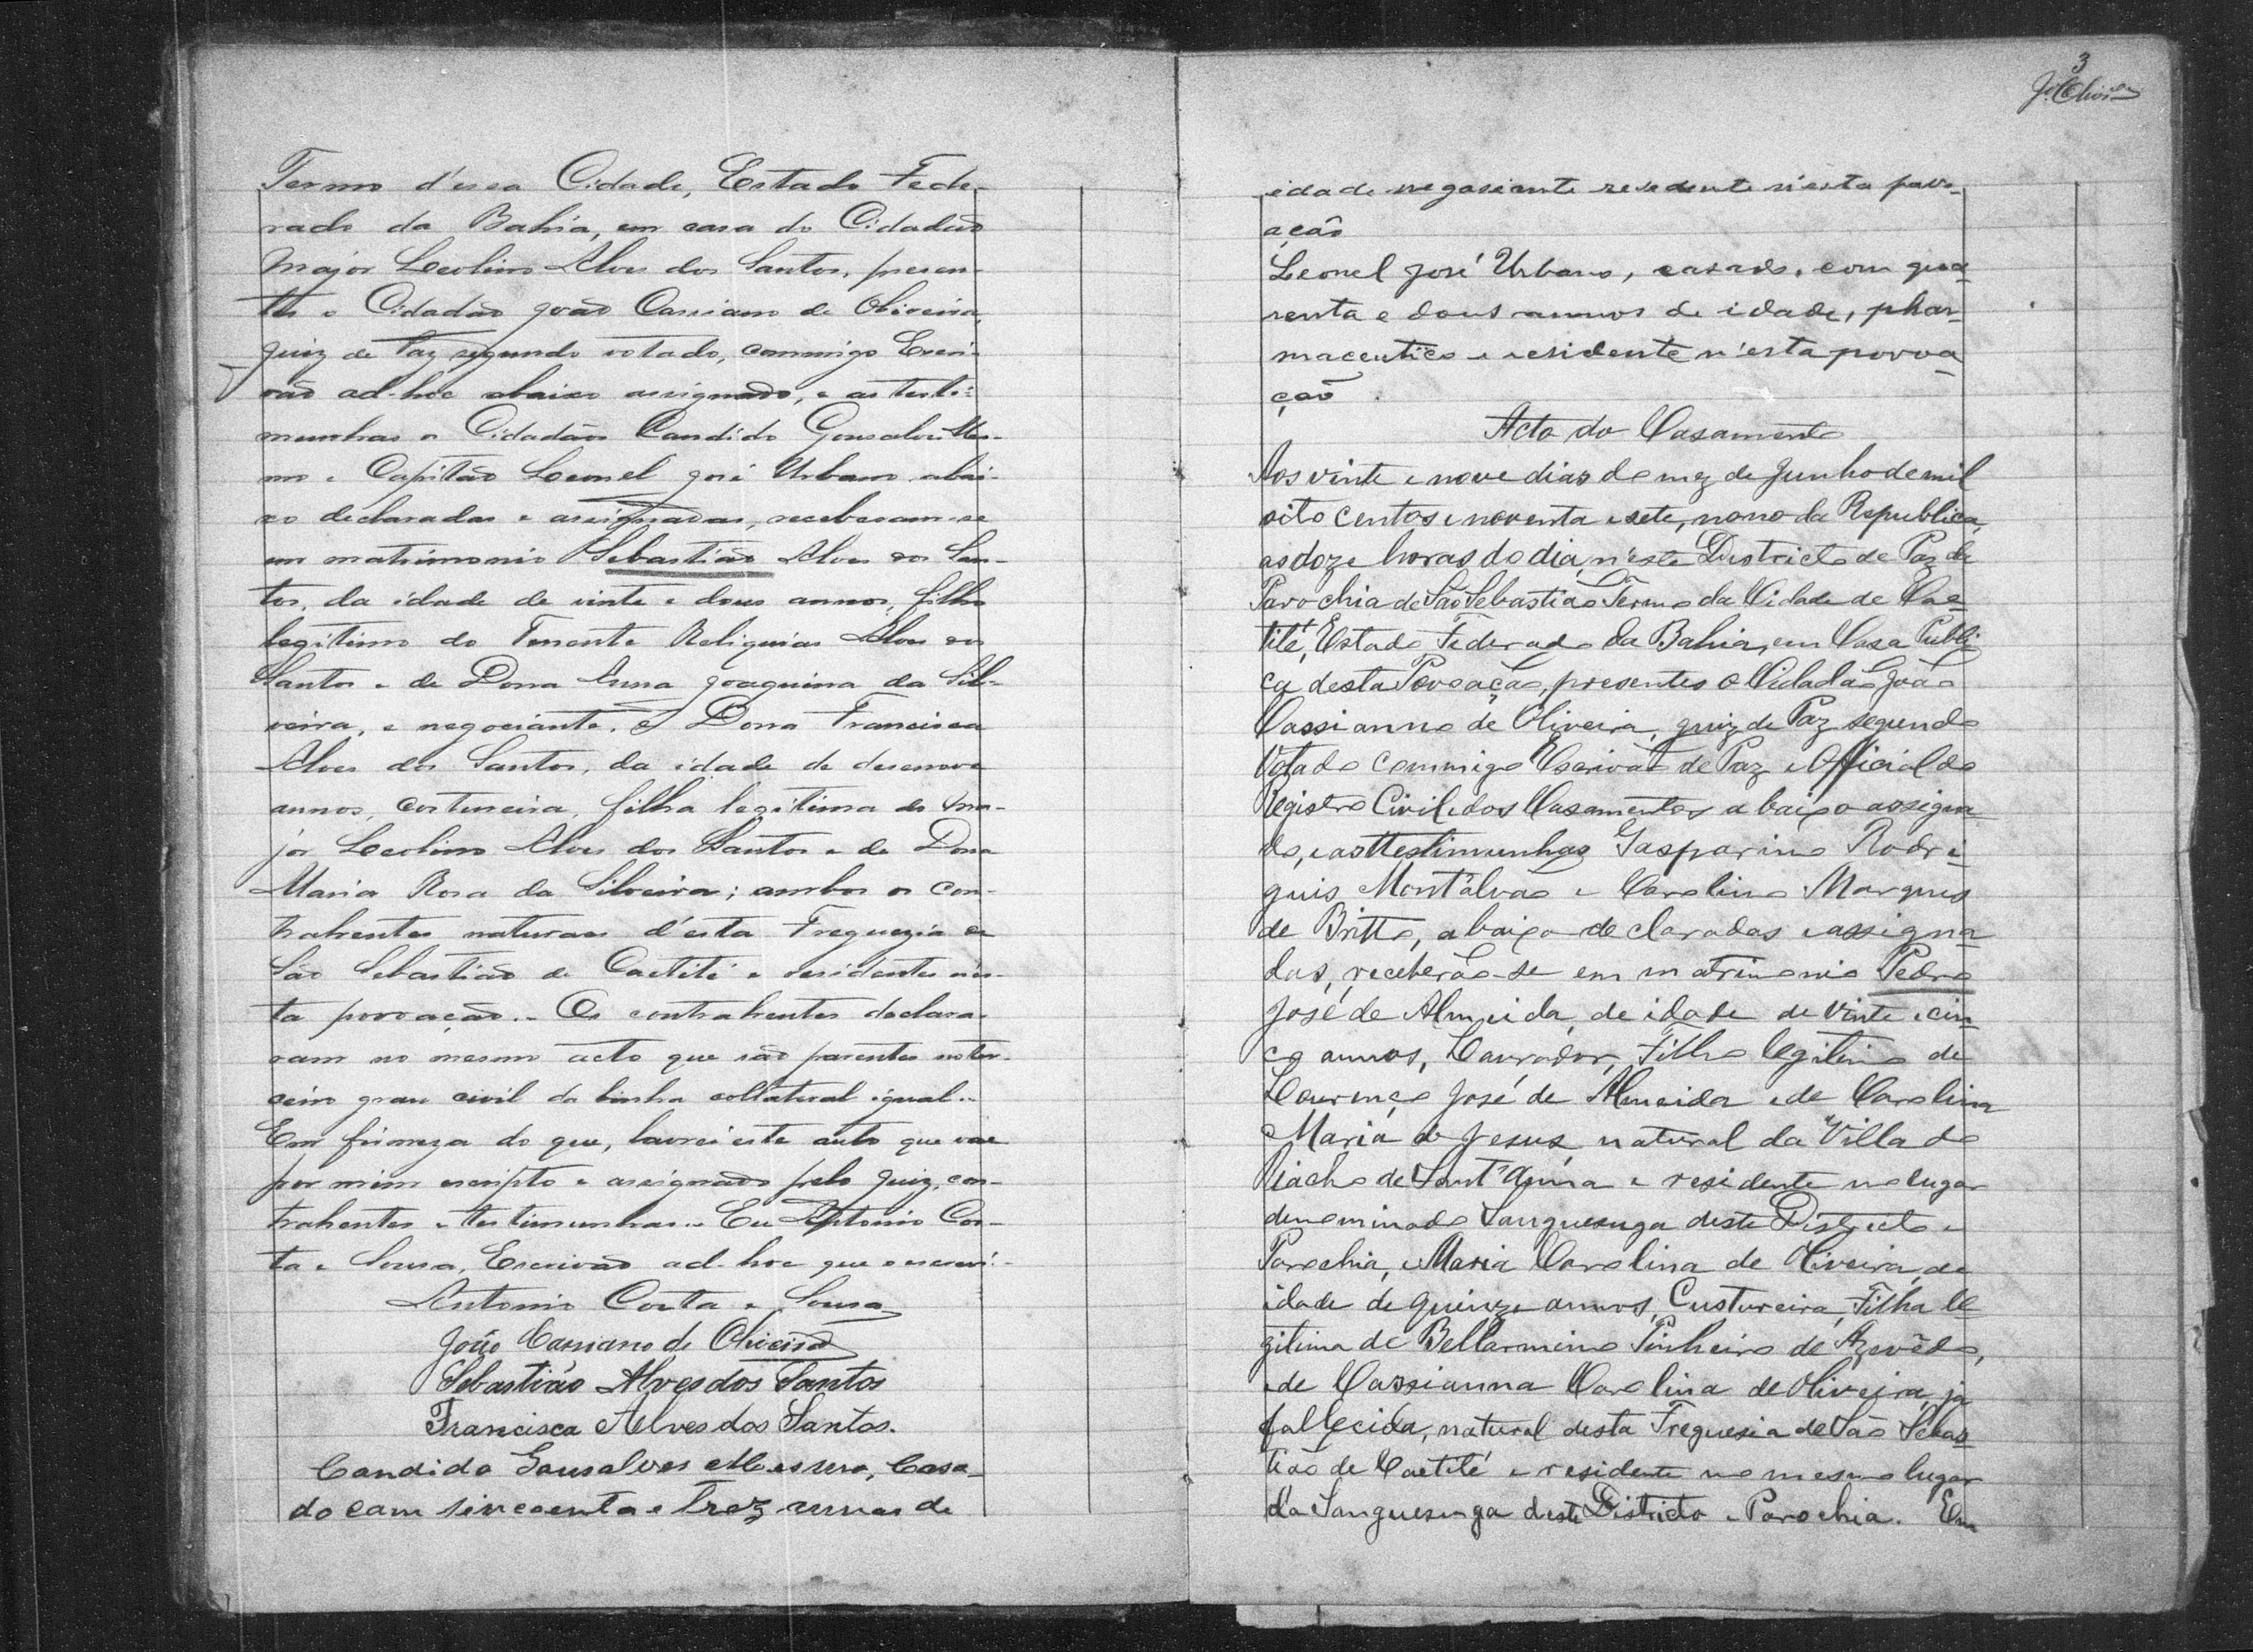 Termo d'essa Cidade, Estado Fede-
rado da Bahia, em casa do Cidadão
Major Leolino Alves dos Santos, presen-
tes o Cidadão João Cassiano de Oliveira,
Juiz de Paz segundo votado, commigo Escri-
vão ad-hoc abaixo assignado, e as teste-
munhas os Cidadãos Candido Gonsalves Mes-
mo e Capitão Leonel José Urbano abai-
xo declaradas e assignadas, receberam-se
em matrimonio Sebastião Alves dos San-
tos, da idade de vinte e dous annos, filho
legitimo do Tenente Reliquias Alves dos
Santos e de Dona Anna Joaquina da Sil-
veira, e negociante. E Dona Francisca
Alves dos Santos, da idade de desenove
annos, costureira, filha legitima do Ma-
jor Leolino Alves dos Santos e de Dona
Maria Rosa da Silveira; ambos os con-
trahentes naturaes d'esta Freguezia de
São Sebastião de Caetité e residentes n'es-
ta povoação.- Os contrahentes declara-
ram no mesmo acto que são parentes no ter-
ceiro grau civil da linha collateral igual.-
Em firmeza do que, lavrei este auto que vae
por mim escripto e assignado pelo Juiz, con-
trahentes e testimunhas.- Eu Antonio Cos-
ta e Sousa, Escrivão ad-hoc que o escrevi.-
Antonio Costa e Sousa
João Cassiano de Oliveira
Sebastião Alves dos Santos
Francisca Alves dos Santos.
Candido Gonsalves, Casa-
do com sincoenta e trez annos de
3
J. C. Oliveira
idade negosiante resedente n'esta povo-
ação
Leonel José Urbano, casado, com qua-
renta e dous annos de idade, phar-
maceutico e residente n'esta povoa-
ção.
Acto do Casamento
Aos vinte e nove dias do mez de Junho de mil
oito centos e noventa e sete, nono da Republica,
as doze horas do dia, n'este Districto de Paz da
Parochia de São Sebastião Termo da Cidade de Cae-
tité, Estado Federado da Bahia, em Casa Publi-
ca desta Povoação, presentes o Cidadão João
Cassianno de Oliveira, Juiz de Paz segundo
Votado commigo Escrivão de Paz e Official do
Registro Civil dos Casamentos abaixo assigna-
do, e as ttestimunhas Gasparino Rodri-
guis Montalvão e Carolino Marques
de Britto, abaixo declaradas e assigna-
das, receberão-se em matrimonio Pedro
José de Almeida, de idade de vinte e cin-
co annos, Lavrador, Filho legitimo de
Lourenço José de Almeida e de Carolina
Maria de Jesus, natural da Villa do
Riacho de Sant'Anna e residente no lugar
denominado Sanguesuga deste Districto e
Parochia, e Maria Carolina de Oliveira, de
idade de quinze annos, Custureira, Filha le-
gitima de Bellarmino Pinheiro de Azevêdo,
e de Cassianna Carolina de Oliveira, já
fallecida, natural desta Freguesia de São Sebas-
tião de Caetité e residente no mesmo lugar
da Sanguesuga deste Districto e Parochia. Em